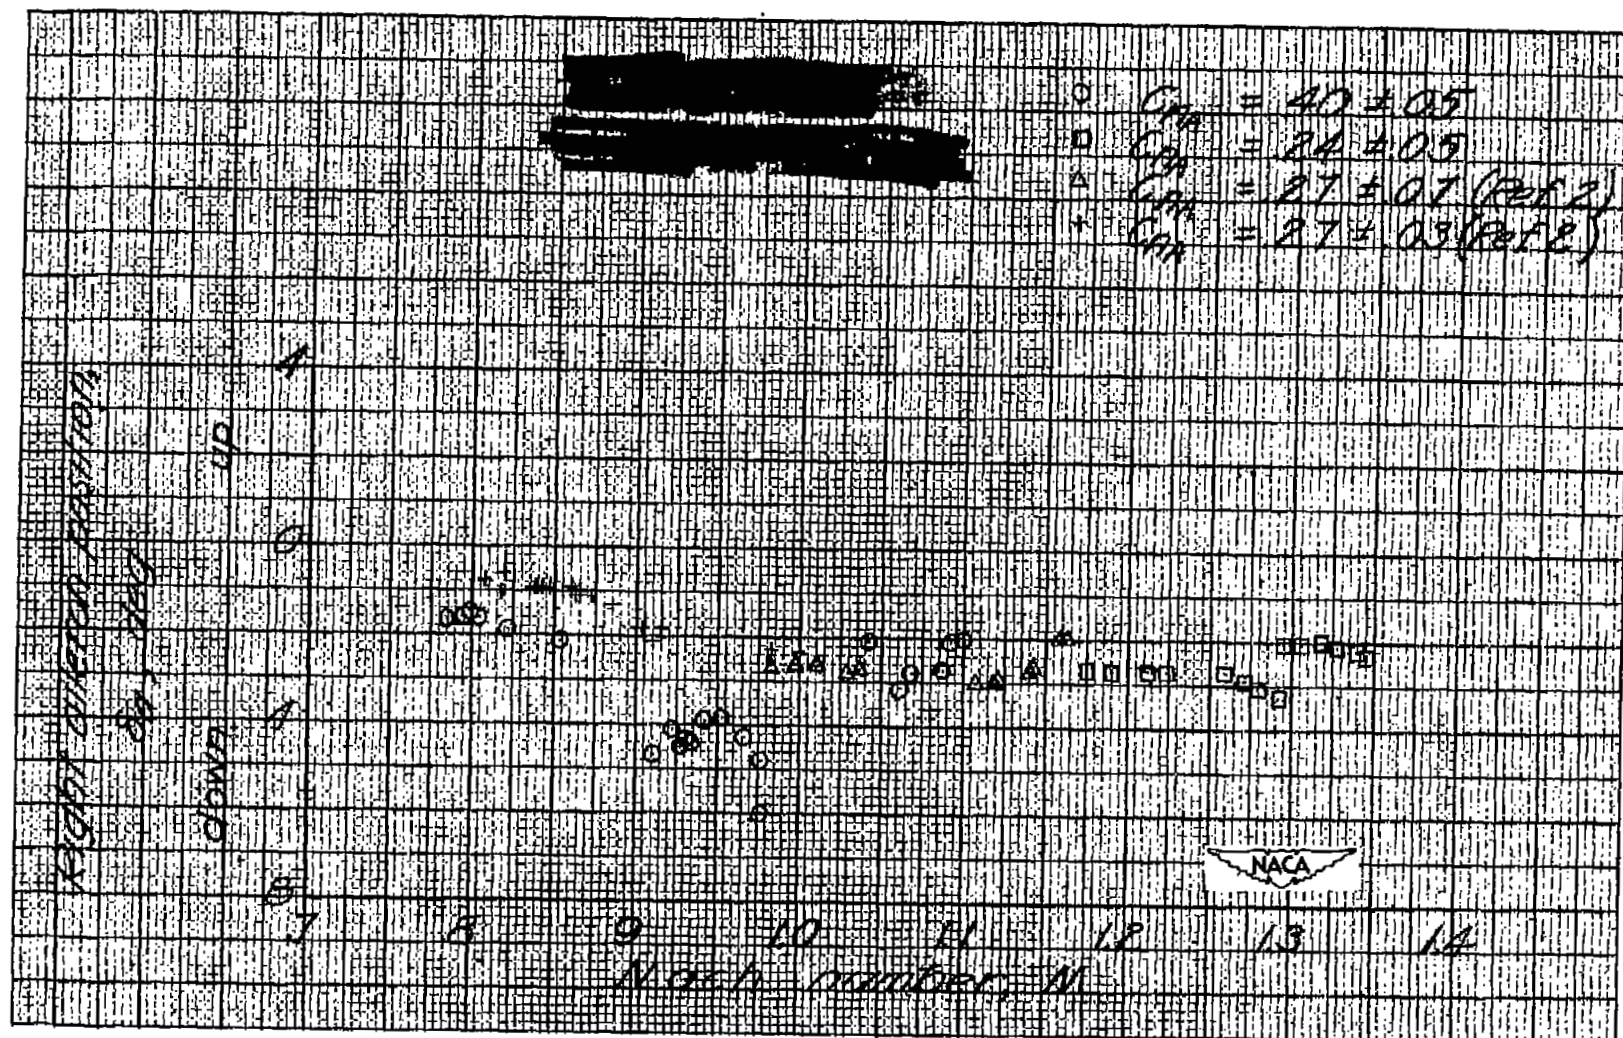 = .40 ± .05
= .24 ± .05
= .27 ± .07 (Ref 2)
= .27 ± .03 (Ref 2)
Right aileron position,
deg
up
down
4
0
4
8
.7 .8 .9 1.0 1.1 1.2 1.3 1.4
Mach number, M
NACA